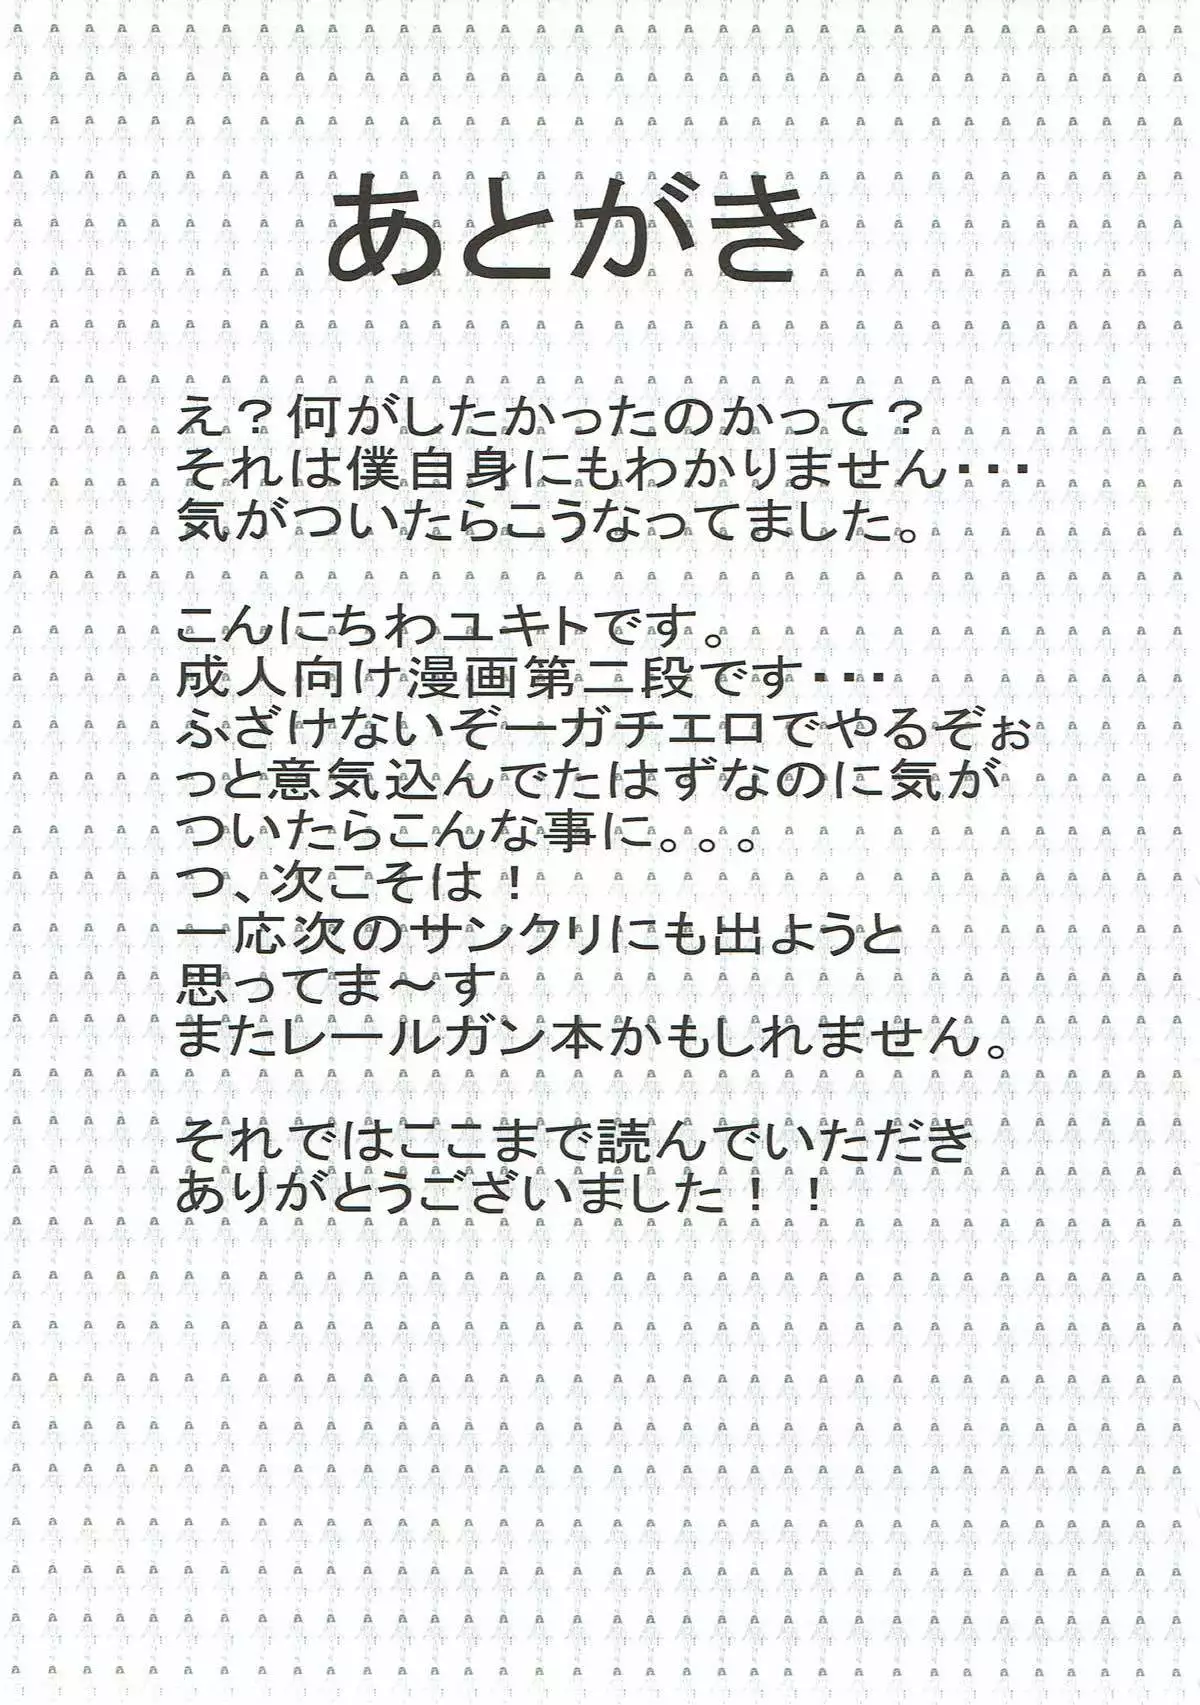 あとがき
え？何がしたかったのかって？
それは僕自身にもわかりません・・・
気がついたらこうなってました。
こんにちわユキトです。
成人向け漫画第二段です・・・
ふざけないぞーガチエロでやるぞぉ
っと意気込んでたはずなのに気が
ついたらこんな事に。。。
つ、次こそは！
一応次のサンクリにも出ようと
思ってま～す
またレールガン本かもしれません。
それではここまで読んでいただき
ありがとうございました！！